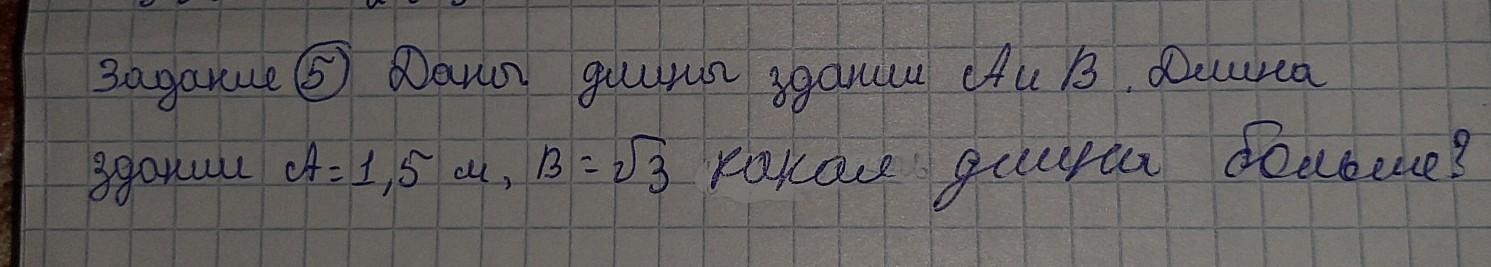 Задание 5 Даны длины здании А и В. Длина
здании А = 1,5 м, В = √3 какая длина больше?